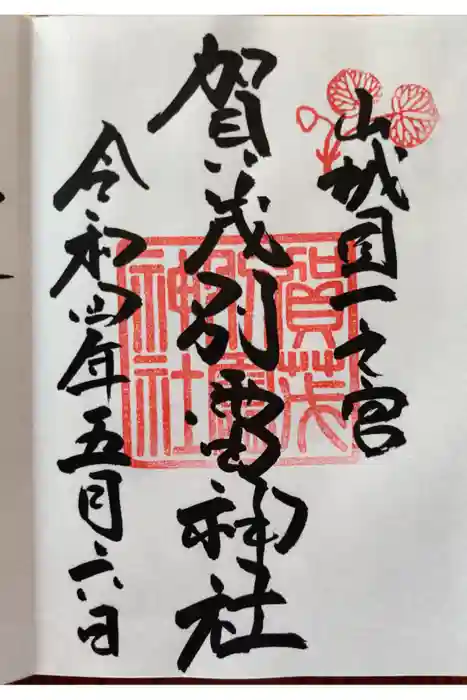 山城国一之宮
賀茂別雷神社
令和四年五月六日
賀茂別雷神社